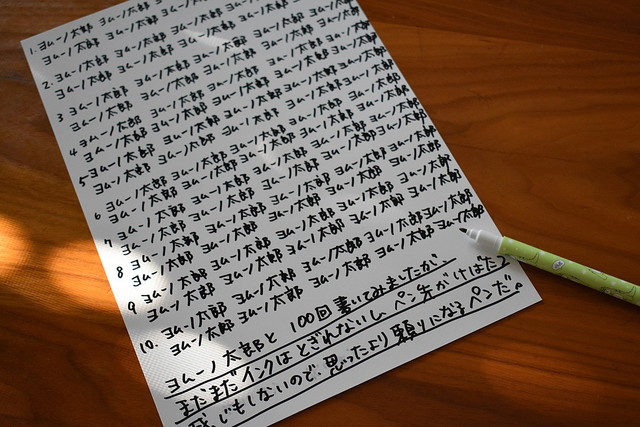 1. ヨムーノ太郎 ヨムーノ太郎 ヨムーノ太郎 ヨムーノ太郎
ヨムーノ太郎 ヨムーノ太郎 ヨムーノ太郎 ヨムーノ太郎 ヨムーノ太郎
2. ヨムーノ太郎 ヨムーノ太郎 ヨムーノ太郎 ヨムーノ太郎 ヨムーノ太郎
ヨムーノ太郎 ヨムーノ太郎 ヨムーノ太郎 ヨムーノ太郎 ヨムーノ太郎
3 ヨムーノ太郎 ヨムーノ太郎 ヨムーノ太郎 ヨムーノ太郎 ヨムーノ太郎
ヨムーノ太郎 ヨムーノ太郎 ヨムーノ太郎 ヨムーノ太郎 ヨムーノ太郎
4 ヨムーノ太郎 ヨムーノ太郎 ヨムーノ太郎 ヨムーノ太郎 ヨムーノ太郎
ヨムーノ太郎 ヨムーノ太郎 ヨムーノ太郎 ヨムーノ太郎 ヨムーノ太郎
5 ヨムーノ太郎 ヨムーノ太郎 ヨムーノ太郎 ヨムーノ太郎 ヨムーノ太郎
ヨムーノ太郎 ヨムーノ太郎 ヨムーノ太郎 ヨムーノ太郎 ヨムーノ太郎
6 ヨムーノ太郎 ヨムーノ太郎 ヨムーノ太郎 ヨムーノ太郎 ヨムーノ太郎
ヨムーノ太郎 ヨムーノ太郎 ヨムーノ太郎 ヨムーノ太郎 ヨムーノ太郎
7 ヨムーノ太郎 ヨムーノ太郎 ヨムーノ太郎 ヨムーノ太郎 ヨムーノ太郎
ヨムーノ太郎 ヨムーノ太郎 ヨムーノ太郎 ヨムーノ太郎 ヨムーノ太郎
8 ヨムーノ太郎 ヨムーノ太郎 ヨムーノ太郎 ヨムーノ太郎 ヨムーノ太郎
ヨムーノ太郎 ヨムーノ太郎 ヨムーノ太郎 ヨムーノ太郎 ヨムーノ太郎
9 ヨムーノ太郎 ヨムーノ太郎 ヨムーノ太郎 ヨムーノ太郎 ヨムーノ太郎
ヨムーノ太郎 ヨムーノ太郎 ヨムーノ太郎 ヨムーノ太郎 ヨムーノ太郎
10. ヨムーノ太郎 ヨムーノ太郎 ヨムーノ太郎 ヨムーノ太郎 ヨムーノ太郎
ヨムーノ太郎 ヨムーノ太郎 ヨムーノ太郎 ヨムーノ太郎 ヨムーノ太郎
ヨムーノ太郎と 100回書いてみましたが
まだまだインクはとぎれないし ペン先がけばだつ
感じもしないので、思ったより頼りになるペンだ。